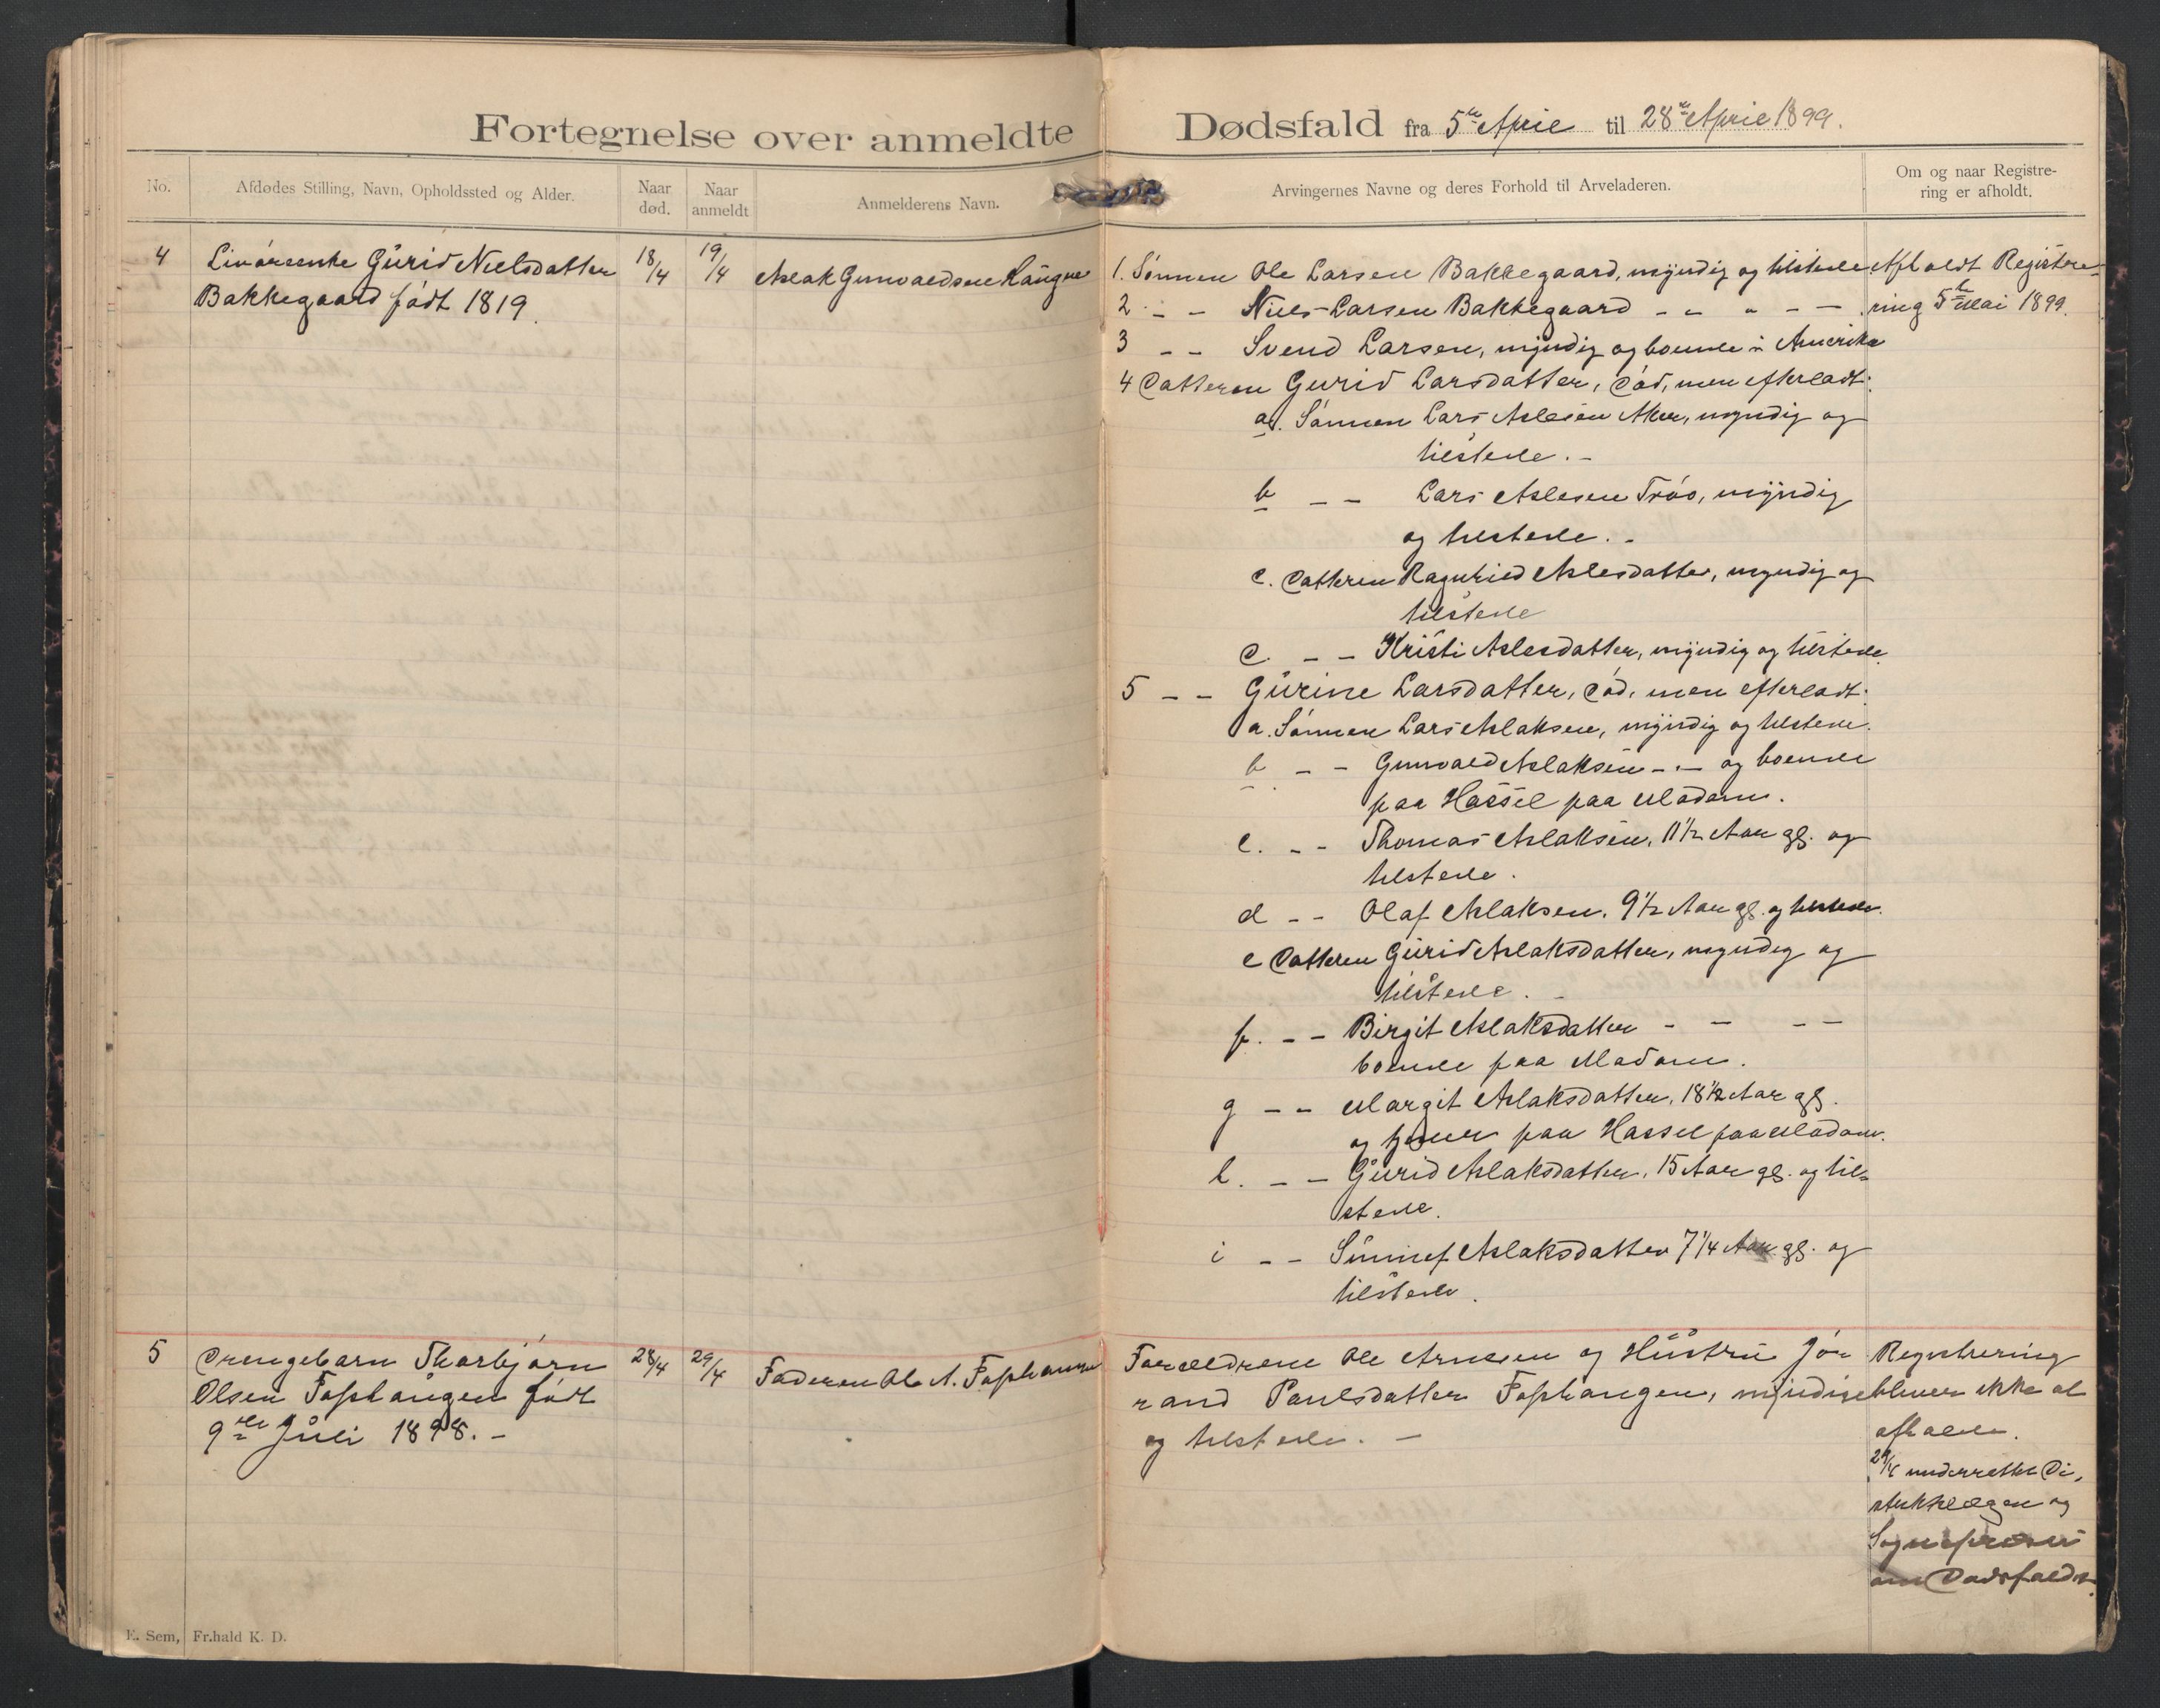 Fortegnelse over anmeldte Dødsfald fra 5te April til 28de April 1899.
No.
Afdødes Stilling, Navn, Opholdssted og Alder.
Naar død.
Naar anmeldt
Anmelderens Navn.
Arvingernes Navne og deres Forhold til Arveladeren.
Om og naar Registre-
ring er afholdt.
4
Livørenke Gurid Nielsdatter
Bakkegaard født 1819.
18/4
19/4
Aslak Gunvaldsen Haugne
1. Sønnen Ole Larsen Bakkegaard, myndig og tilstede
2 - - Niels Larsen Bakkegaard - - " - -
3 - - Svend Larsen, myndig og boende i Amerika
4 Datteren Gurid Larsdatter, død, men efterladt:
a. Sønnen Lars Aslesen Aker, myndig og
tilstede. -
b - - Lars Aslesen Trøo, myndig
og tilstede. -
c. Datteren Ragnhild Aslesdatter, myndig og
tilstede
d. - - Kristi Aslesdatter, myndig og tilstede.
5 - - Gurine Larsdatter, død, men efterladt:
a. Sønnen Lars Aslaksen, myndig og tilstede.
b - - Gunvald Aslaksen - . - og boende
paa Hassel paa Modum.
c. - - Thomas Aslaksen, 11 1/2 Aar gl. og
tilstede.
d - - Olaf Aslaksen, 9 1/2 Aar gl. og tilstede.
e Datteren Gurid Aslaksdatter, myndig og
tilstede. -
f. - - Birgit Aslaksdatter - - - -
boende paa Modum.
g - - Margit Aslaksdatter, 18 1/2 Aar gl.
og tjener paa Hassel paa Modum.
h. - - Gurid Aslaksdatter, 15 Aar gl. og til-
stede.
i - - Sünnef Aslaksdatter 7 1/4 Aar gl. og
tilstede.
Afholdt Registre-
ring 5te Mai 1899.
5
Drengebarn Thorbjørn
Olsen Foshaugen født
9de Juli 1898. -
28/4
29/4
Faderen Ole A. Foshaugen
Forældrene Ole Arnesen og Hustru Jø-
rand Paulsdatter Foshaugen, myndige
og tilstede. -
Registrering
bliver ikke at
afholde.
29/4 underrettet Di-
striktslægen og
Sognepræst
om Dødsfaldet.
E. Sem, Fr.hald K. D.